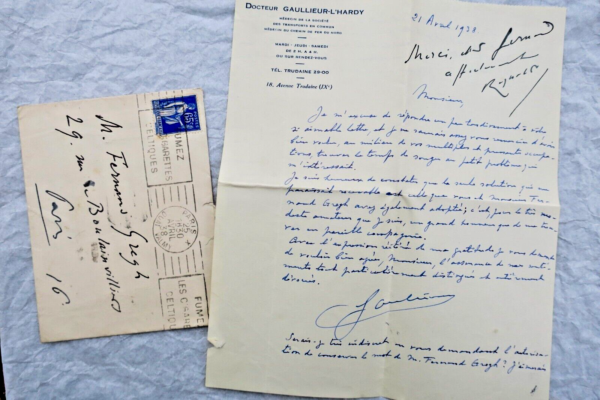 DOCTEUR GAULLIEUR-L'HARDY
MÉDECIN DE LA SOCIÉTÉ
DES TRANSPORTS EN COMMUN
MÉDECIN DU CHEMIN DE FER DU NORD
MARDI - JEUDI - SAMEDI
DE 2 H. A 4 H.
OU SUR RENDEZ-VOUS
TÉL. TRUDAINE 29-00
18, Avenue Trudaine (IXe)
21 Avril
Merci, cher Fernand
affectueusement
Monsieur,
Je m'excuse de répondre un peu tardivement à votre
si aimable lettre, et je ne saurais assez vous remercier d'avoir
bien voulu, au milieu de vos multiples et pesantes occupa-
tions trouver le temps de songer au petit problème qui
m'intéressait.
Je suis heureux de constater que la seule solution qui me
paraissait raisonnable est celle que vous et Monsieur Fer-
nand Gregh avez également adoptée; c'est pour le très mo-
deste amateur que je suis, un grand honneur que de me trou-
ver en pareille compagnie.
Avec l'expression réitérée de ma gratitude je vous demande
de vouloir bien agréer, Monsieur, l'assurance de mes senti-
ments tout particulièrement distingués et entièrement
dévoués.
Gaullieur
Serais-je très indiscret en vous demandant l'autorisa-
tion de conserver le mot de M. Fernand Gregh? J'aimerais
65c
FUMEZ
CIGARETTES
CELTIQUES
PARIS
AVRIL
FUMEZ
LES CIGARETTES
CELTIQUES
M. Fernand Gregh
29, rue de Boulainvilliers
Paris 16